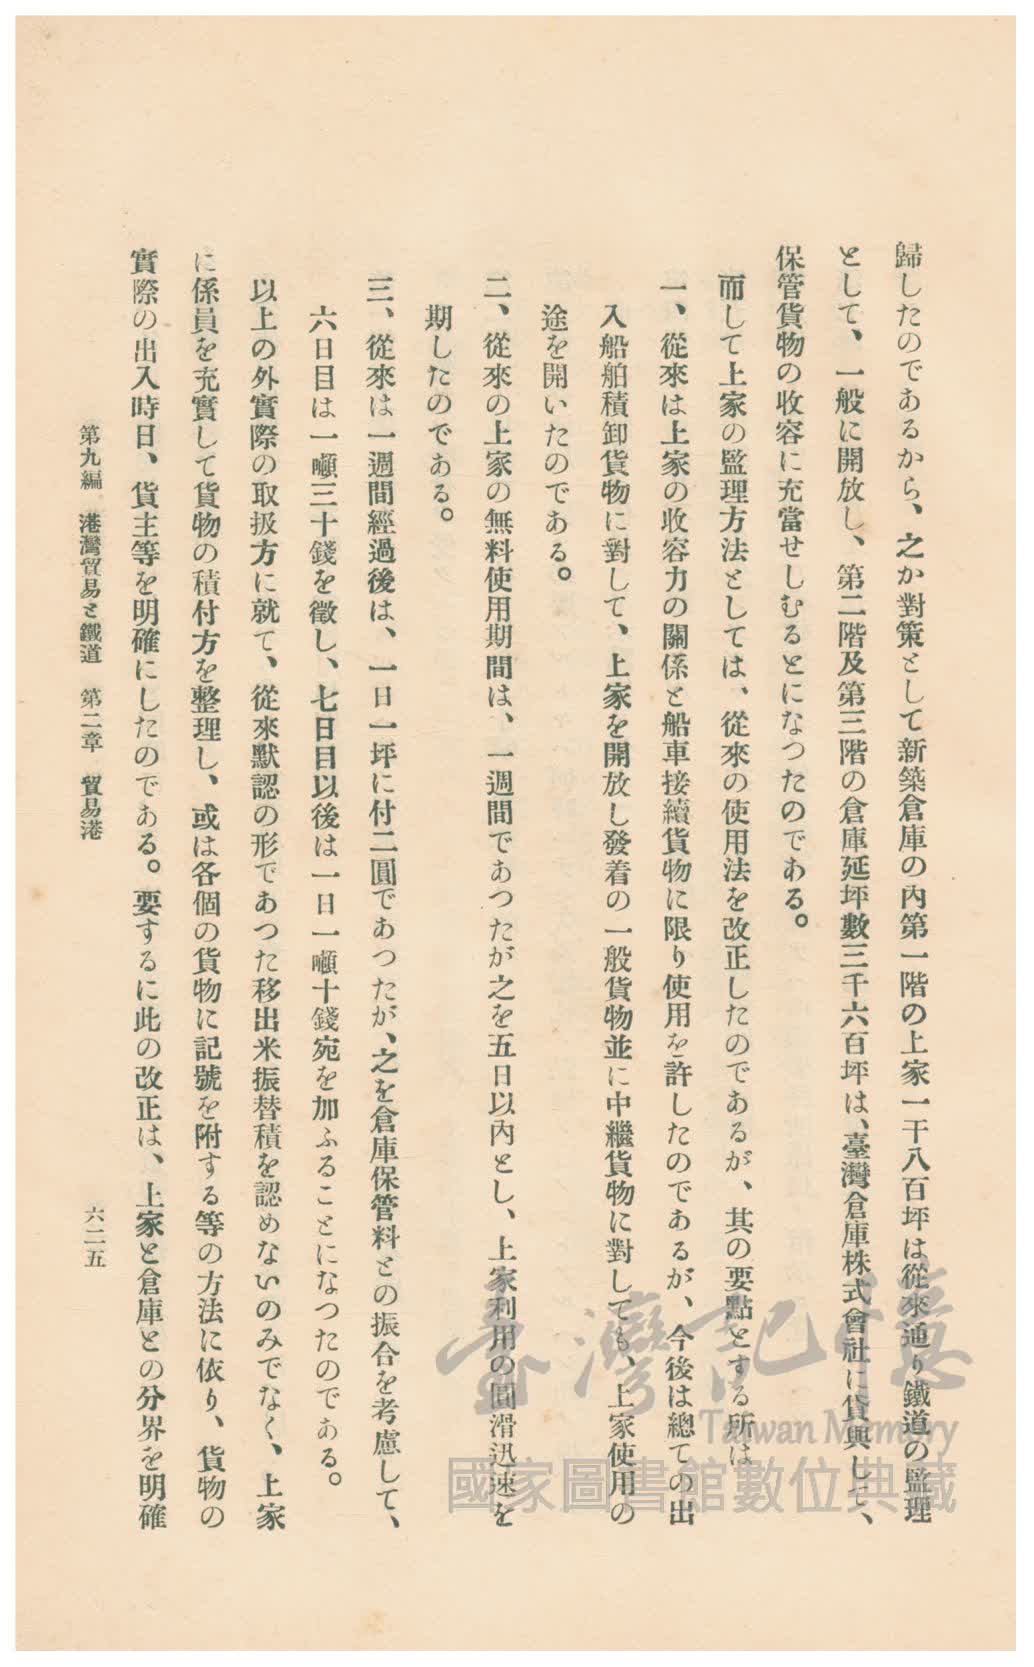 歸したのであるから、之か對策として新築倉庫の內第一階の上家一千八百坪は從來通り鐵道の監理
として、一般に開放し、第二階及第三階の倉庫延坪數三千六百坪は、臺灣倉庫株式會社に貸與して、
保管貨物の收容に充當せしむるとになつたのである。
而して上家の監理方法としては、從來の使用法を改正したのであるが、其の要點とする所は
一、從來は上家の收容力の關係と船車接續貨物に限り使用を許したのであるが、今後は總ての出
入船舶積卸貨物に對して、上家を開放し發着の一般貨物並に中繼貨物に對しても、上家使用の
途を開いたのである。
二、從來の上家の無料使用期間は、一週間であつたが之を五日以內とし、上家利用の圓滑迅速を
期したのである。
三、從來は一週間經過後は、一日一坪に付二圓であつたが、之を倉庫保管料との振合を考慮して、
六日目は一噸三十錢を徵し、七日目以後は一日一噸十錢宛を加ふることになつたのである。
以上の外實際の取扱方に就て、從來默認の形であつた移出米振替積を認めないのみでなく、上家
に係員を充實して貨物の積付方を整理し、或は各個の貨物に記號を附する等の方法に依り、貨物の
實際の出入時日、貨主等を明確にしたのである。要するに此の改正は、上家と倉庫との分界を明確
第九編　港灣貿易と鐵道　第二章　貿易港
六二五
臺灣記憶
Taiwan Memory
國家圖書館數位典藏